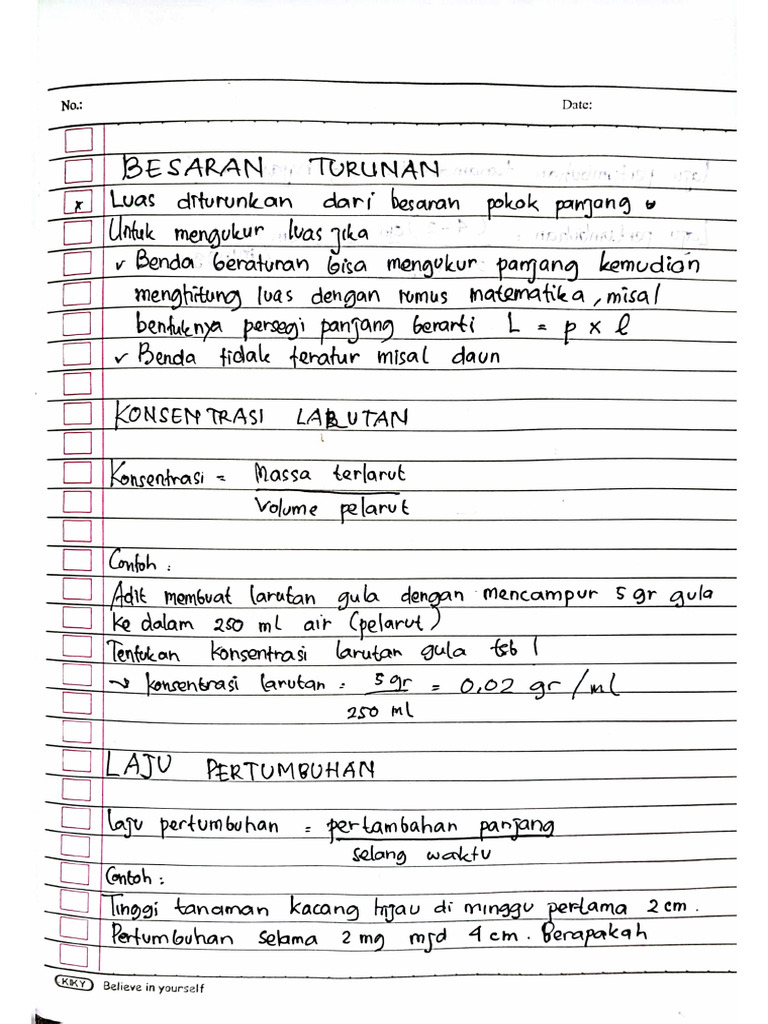 No.: Date:
BESARAN TURUNAN
x Luas diturunkan dari besaran pokok panjang
Untuk mengukur luas jika
✓ Benda beraturan bisa mengukur panjang kemudian
menghitung luas dengan rumus matematika, misal
bentuknya persegi panjang berarti L = p x l
✓ Benda tidak teratur misal daun
KONSENTRASI LARUTAN
Konsentrasi = Massa terlarut
Volume pelarut
Contoh :
Adit membuat larutan gula dengan mencampur 5 gr gula
ke dalam 250 ml air (pelarut)
Tentukan konsentrasi larutan gula tsb !
→ konsentrasi larutan = 5 gr = 0,02 gr/ml
250 ml
LAJU PERTUMBUHAN
Laju pertumbuhan = pertambahan panjang
selang waktu
Contoh :
Tinggi tanaman kacang hijau di minggu pertama 2 cm.
Pertumbuhan selama 2 mg mjd 4 cm. Berapakah
KIKY Believe in yourself